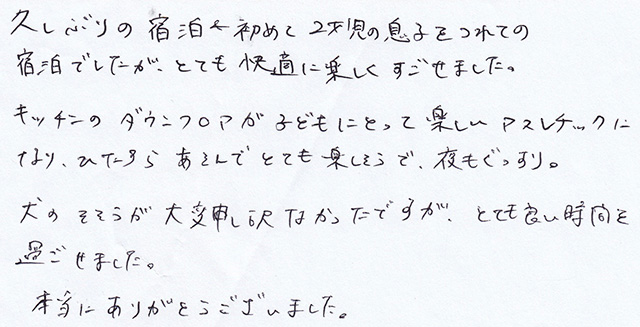 久しぶりの宿泊&初めて2才児の息子をつれての
宿泊でしたが、とても快適に楽しくすごせました。
キッチンのダウンフロアが子どもにとって楽しいアスレチックに
なり、ひたすらあそんでとても楽しそうで、夜もぐっすり。
犬のそそうが大変申し訳なかったですが、とても良い時間を
過ごせました。
本当にありがとうございました。